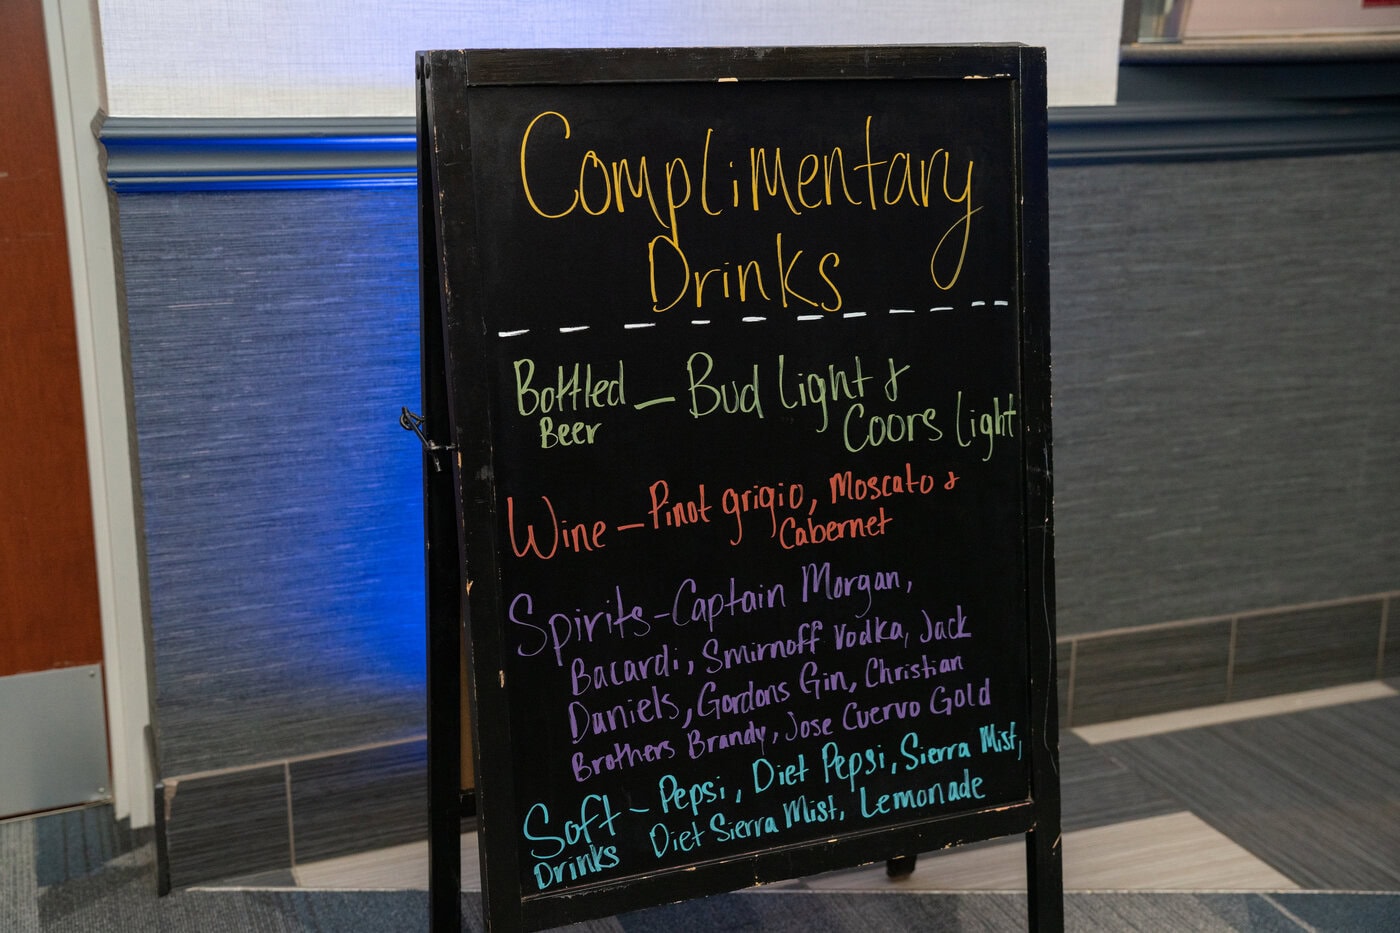 Complimentary
Drinks
Bottled – Bud Light &
Beer Coors Light
Wine – Pinot grigio, Moscato &
Cabernet
Spirits – Captain Morgan,
Bacardi, Smirnoff Vodka, Jack
Daniels, Gordons Gin, Christian
Brothers Brandy, Jose Cuervo Gold
Soft – Pepsi, Diet Pepsi, Sierra Mist,
Drinks Diet Sierra Mist, Lemonade